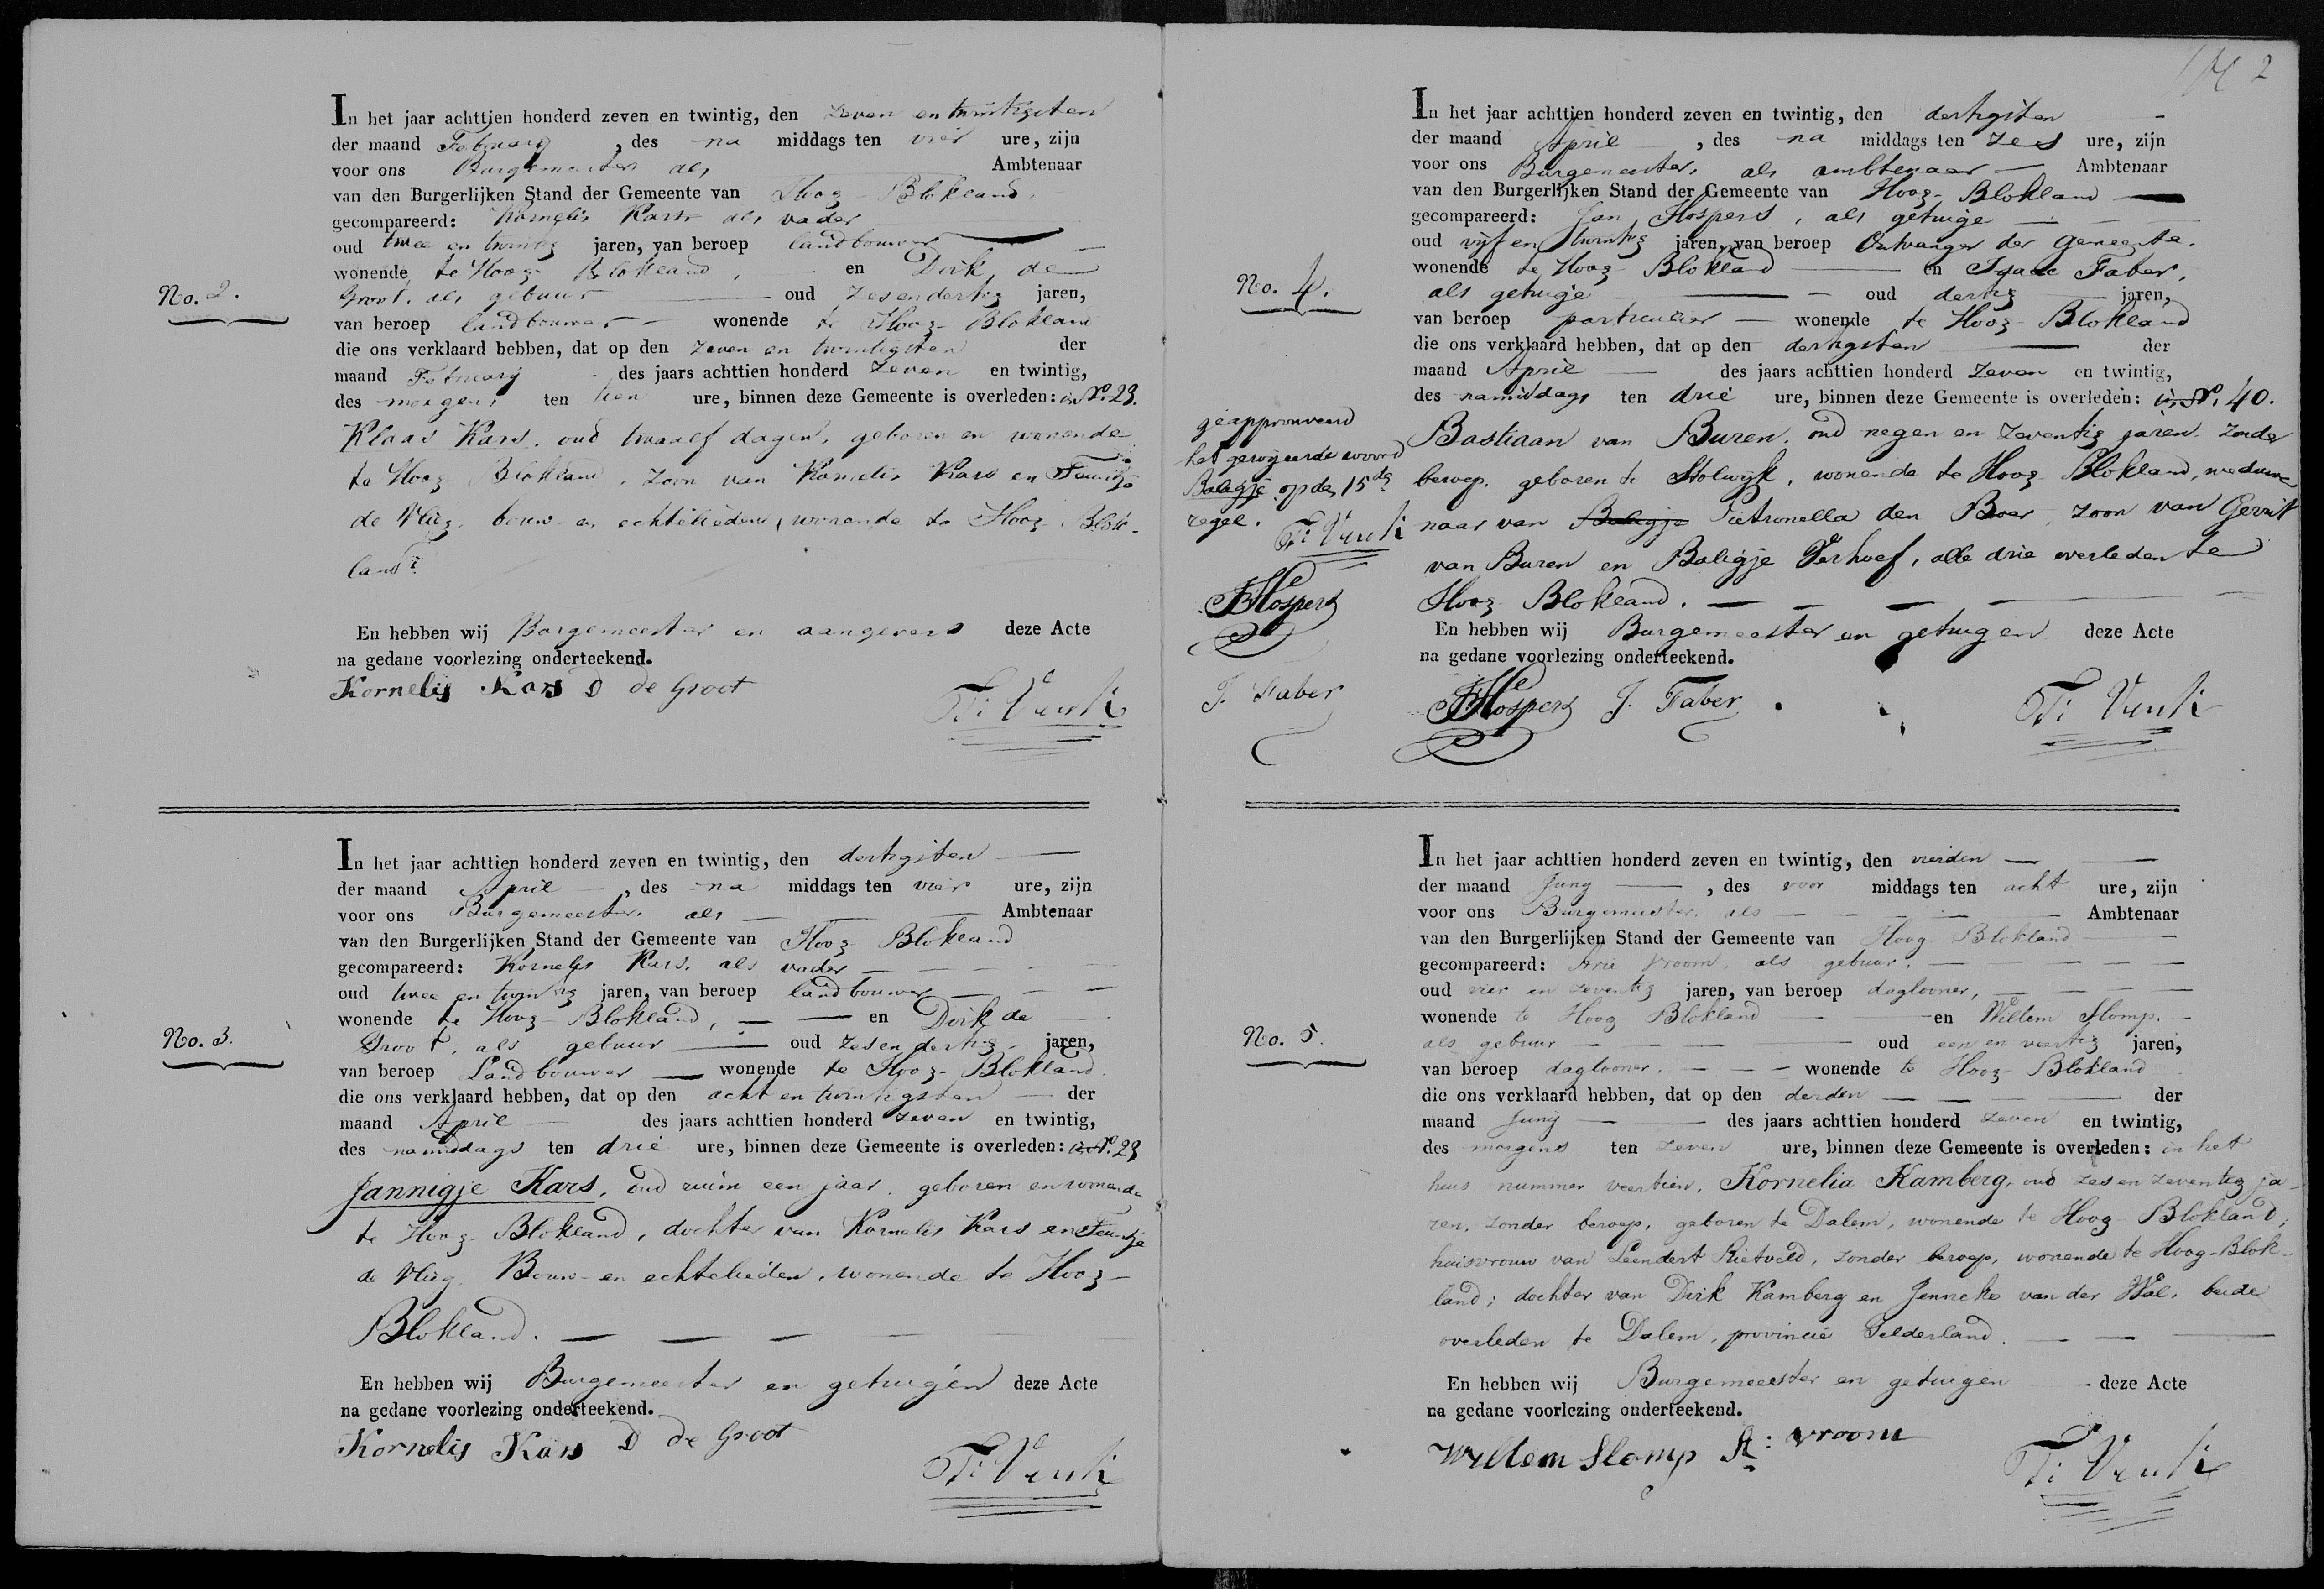 No. 2.
In het jaar achttien honderd zeven en twintig, den zeven en twintigsten
der maand February, des na middags ten vier ure, zijn
voor ons Burgemeester als Ambtenaar
van den Burgerlijken Stand der Gemeente van Hoog-Blokland,
gecompareerd: Kornelis Kars als vader
oud twee en twintig jaren, van beroep landbouwer
wonende te Hoog-Blokland, en Dirk de
Groot, als gebuur oud zesendertig jaren,
van beroep landbouwer wonende te Hoog-Blokland
die ons verklaard hebben, dat op den zeven en twintigsten der
maand February des jaars achttien honderd zeven en twintig,
des morgens ten tien ure, binnen deze Gemeente is overleden: in No. 29.
Klaas Kars, oud twaalf dagen, geboren en wonende
te Hoog-Blokland, zoon van Kornelis Kars en Teuntje
de Vlieg, bouw- en echtelieden, wonende te Hoog-Blok-
land.
En hebben wij Borgemeester en aangevers deze Acte
na gedane voorlezing onderteekend.
Kornelis Kars D de Groot
No. 3.
In het jaar achttien honderd zeven en twintig, den dertigsten
der maand April, des na middags ten vier ure, zijn
voor ons Burgemeester als Ambtenaar
van den Burgerlijken Stand der Gemeente van Hoog-Blokland
gecompareerd: Kornelis Kars, als vader
oud twee en twintig jaren, van beroep landbouwer
wonende te Hoog-Blokland, en Dirk de
Groot, als gebuur oud zesendertig jaren,
van beroep Landbouwer wonende te Hoog-Blokland
die ons verklaard hebben, dat op den acht en twintigsten der
maand April des jaars achttien honderd zeven en twintig,
des namiddags ten drie ure, binnen deze Gemeente is overleden: in No. 29
Jannigje Kars, oud ruim een jaar, geboren en wonende
te Hoog-Blokland, dochter van Kornelis Kars en Teuntje
de Vlieg, Bouw- en echtelieden, wonende te Hoog-
Blokland.
En hebben wij Burgemeester en getuigen deze Acte
na gedane voorlezing onderteekend.
Kornelis Kars D de Groot
2
No. 4.
In het jaar achttien honderd zeven en twintig, den dertigsten
der maand April, des na middags ten zes ure, zijn
voor ons Burgemeester, als ambtenaar Ambtenaar
van den Burgerlijken Stand der Gemeente van Hoog-Blokland
gecompareerd: Jan Hospers, als getuige
oud vijf en twintig jaren, van beroep Ontvanger der Gemeente,
wonende te Hoog-Blokland en Isaac Faber,
als getuige oud dertig jaren,
van beroep particulier wonende te Hoog-Blokland
die ons verklaard hebben, dat op den dertigsten der
maand April des jaars achttien honderd zeven en twintig,
des namiddags ten drie ure, binnen deze Gemeente is overleden: in No. 40.
Bastiaan van Buren, oud negen en zeventig jaren, zonder
beroep, geboren te Stolwijk, wonende te Hoog-Blokland, weduwe-
naar van Baligje Pietronella den Boer, zoon van Gerrit
van Buren en Baligje Verhoef, alle drie overleden te
Hoog-Blokland.
En hebben wij Burgemeester en getuigen deze Acte
na gedane voorlezing onderteekend.
JHospers J. Faber
geapprouveerd
het geroijeerde woord
Baligje op de 15de
regel.
JHospers
J. Faber
No. 5.
In het jaar achttien honderd zeven en twintig, den vierden
der maand Juny, des voor middags ten acht ure, zijn
voor ons Burgemeester, als Ambtenaar
van den Burgerlijken Stand der Gemeente van Hoog Blokland
gecompareerd: Arie Vroom, als gebuur,
oud vier en zeventig jaren, van beroep daglooner,
wonende te Hoog-Blokland en Willem Slomp,
als gebuur oud een en veertig jaren,
van beroep daglooner, wonende te Hoog-Blokland
die ons verklaard hebben, dat op den derden der
maand Juny des jaars achttien honderd zeven en twintig,
des morgens ten zeven ure, binnen deze Gemeente is overleden: in het
huis nummer veertien, Kornelia Kamberg, oud zes en zeventig ja-
ren, zonder beroep, geboren te Dalem, wonende te Hoog-Blokland,
huisvrouw van Leendert Rietveld, zonder beroep, wonende te Hoog-Blok-
land; dochter van Dirk Kamberg en Jenneke van der Wal, beide
overleden te Dalem, provincie Gelderland.
En hebben wij Burgemeester en getuigen deze Acte
na gedane voorlezing onderteekend.
Willem Slomp A: Vroom